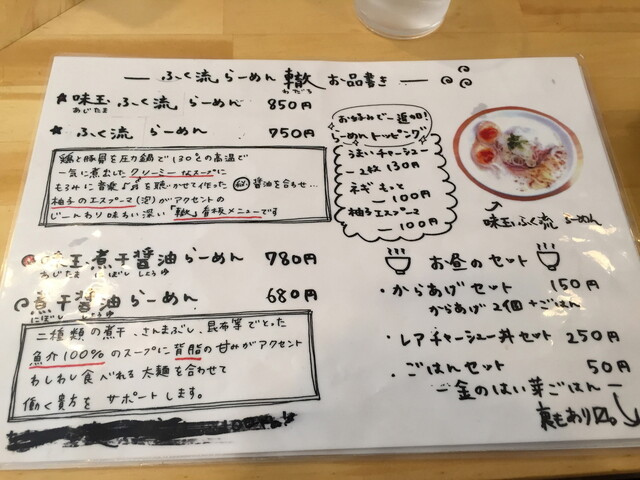 ふく流らーめん 轍 お品書き
わだち
味玉ふく流らーめん 850円
あじたま
ふく流らーめん 750円
鶏と豚骨を圧力鍋で130℃の高温で
一気に煮出したクリーミーなスープに
もろみに音楽を聴かせて作った 醤油を合わせ…
柚子のエスプーマ(泡)がアクセントの
じーんわり味わい深い「轍」看板メニューです
味玉煮干醤油らーめん 780円
あじたま にぼし しょうゆ
煮干醤油らーめん 680円
にぼし しょうゆ
二種類の煮干、さんまぶし、昆布等でとった
魚介100%のスープに背脂の甘みがアクセント
わしわし食べれる太麺を合わせて
働く貴方をサポートします。
お好みで一追加!
らーめんトッピング
うまいチャーシュー
2枚 130円
ネギもっと
100円
柚子エスプーマ
100円
味玉ふく流らーめん
お昼のセット
・からあげセット 150円
からあげ2個+ごはん
・レアチャーシュー丼セット 250円
・ごはんセット 50円
金のはい芽ごはん
裏もあり〼。